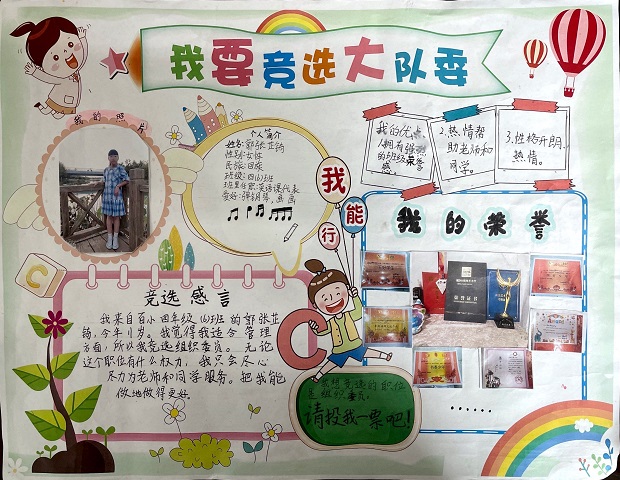 我要竞选大队委
我的照片
个人简介
性别:女性
民族:回族
班级:四(4)班
班里任职:英语课代表
爱好:弹钢琴,画画
我的优点:
1.拥有强烈
的班级荣誉
感
2.热情帮
助老师和
同学。
3.性格开朗,
热情。
我能行
我的荣誉
竞选感言
我来自百小四年级(4)班的郭张芷
今年11岁。我觉得我适合管理
方面,所以我竞选组织委员。无论
这个职位有什么权力,我只会尽心
尽力为老师和同学服务。把我能
做地做得更好。
我想竞选的职位
是组织委员。
请投我一票吧!
荣誉证书
C
C
......